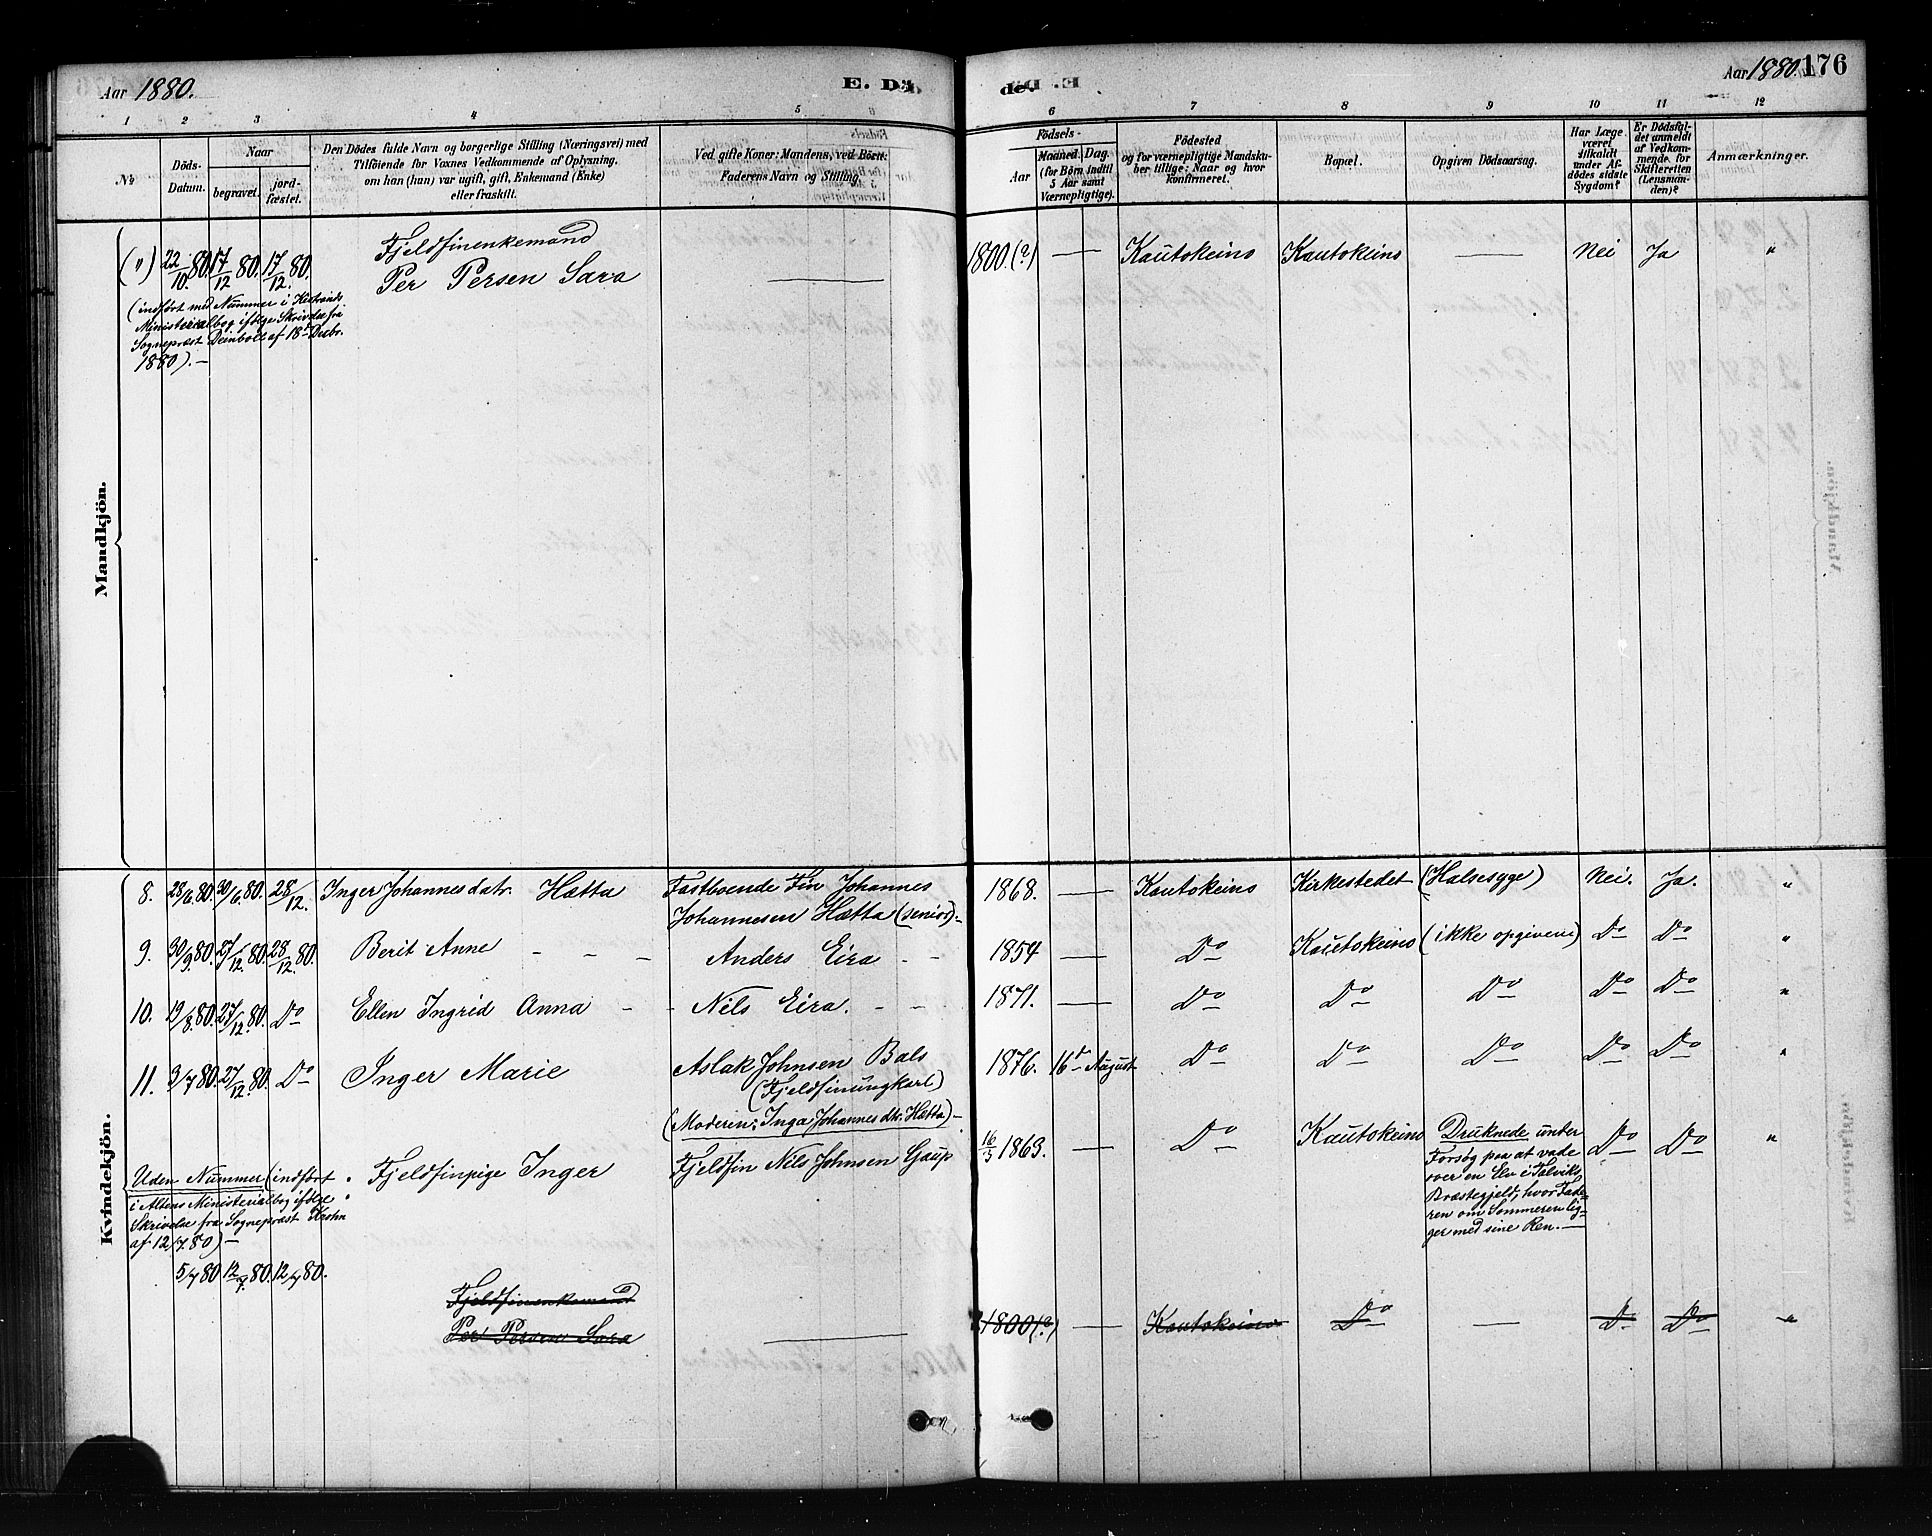 Aar 1880.
E. Dö
de.
Aar 1880. 176
1 2 3 4 5
6 7 8 9 10 11 12
№
Döds-
Datum.
Naar
begravet.
jord-
fæstet.
Den Dödes fulde Navn og borgerlige Stilling (Næringsvei) med
Tilföiende for Voxnes Vedkommende af Oplysning,
om han (hun) var ugift, gift, Enkemand (Enke)
eller fraskilt.
Ved gifte Koner: Mandens, ved Börn:
Faderens Navn og Stilling.
Födsels-
Aar
Maaned. Dag.
(for Börn indtil
5 Aar samt
Værnepligtige).
Födested
og for værnepligtige Mandsku-
ber tillige: Naar og hvor
konfirmeret.
Bopæl.
Opgiven Dödsaarsag.
Har Læge
været
tilkaldt
under Af-
dödes sidste
Sygdom?
Er Dödsfal-
det anmeldt
af Vedkom-
mende for
Skifteretten
(Lensman-
den)?
Anmærkninger.
Mandkjön.
(") 22/10 80. 17/12 80. 17/12 80. Fjeldfinenkemand
Per Persen Sara — 1800.(?) — Kautokeino Kautokeino — Nei Ja "
(indfört med Nummer i Kistrands
Ministerialbog ifölge Skrivelse fra
Sognepræst Deinboll af 18de Decbr.
1880). —
Kvindekjön.
8. 28/6 80. 30/6 80. 28/12. Inger Johannesdatr. Hætta Fastboende Fin Johannes
Johannesen Hætta (senior). – 1868. — Kautokeino Kirkestedet (Halsesyge) Nei. Ja. "
9. 30/9 80. 27/12 80. 28/12 80. Berit Anne – – – Anders Eira – – 1854 — Do Kautokeino (ikke opgiven) Do Do "
10. 19/8 80. 27/12 80. Do Ellen Ingrid Anna – – Nils Eira. – – 1871. — Do Do Do Do Do "
11. 3/7 80. 27/12 80. Do Inger Marie Aslak Johnsen Bals
(Fjeldfinungkarl)
(Moderen: Inga Johannesdtr. Hætta) – 1876. 16de August Do Do Do Do Do "
Uden Nummer (indfört
i Altens Ministerialbog ifölge
Skrivelse fra Sognepræst Krohn
af 12/7.80) —
5/7 80 12/7 80. 12/7 80.
Fjeldfinpige Inger Fjeldfin Nils Johnsen Gaup 16/3 1863. — Do Kautokeino
Druknede under
Forsög paa at vade
over en Elv i Talviks
Præstegjeld, hvor Fade-
ren om Sommeren lig-
ger med sine Ren. —
Do Do "
Fjeldfinenkemand
Per Persen Sara — 1800(?) — Kautokeino Do — Do Do "